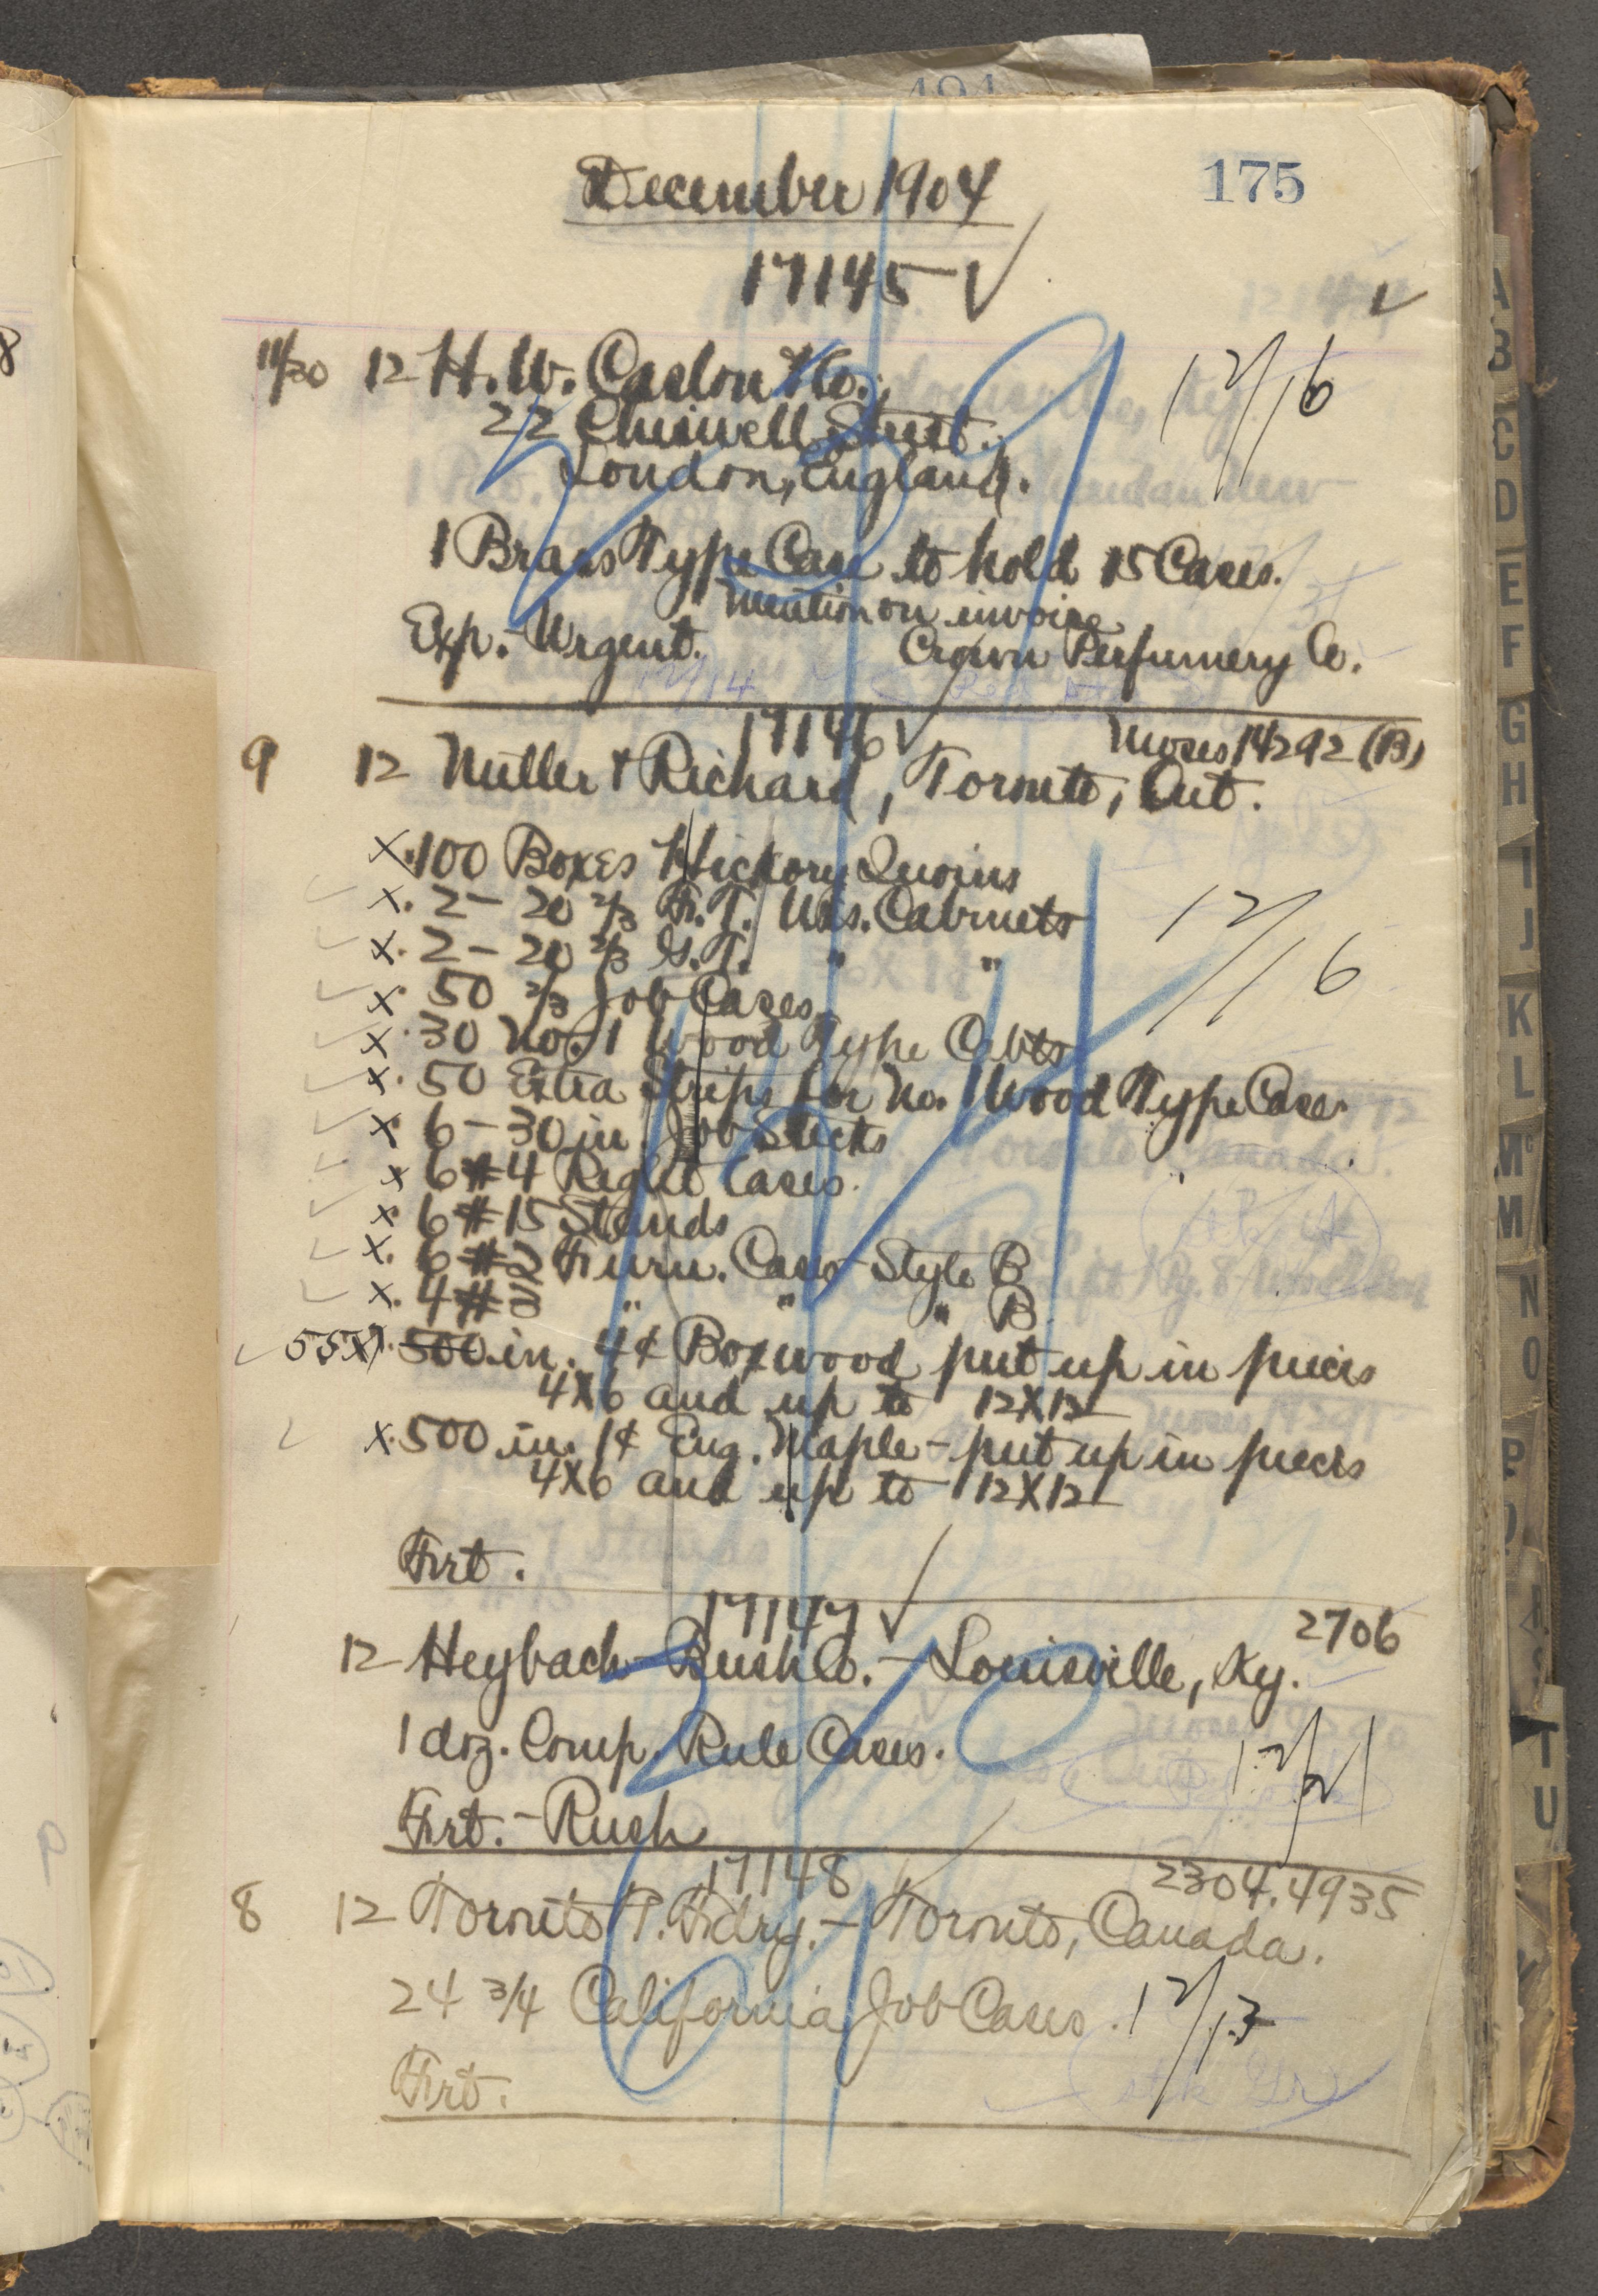 175
December 1904
17145 ✓
11/30 12 H. W. Caslon & Co., 12/16
22 Chiswell Street.
London, England.
1 Brass Type Case to hold 15 Cases.
Mention on invoice
Exp. - Urgent. Crown Perfumery Co.
17146 ✓ Moses 14292 (B)
9 12 Miller & Richard, Toronto, Ont.
x 100 Boxes Hickory Quoins
x 2 - 20 2/3 F. T. Cabinets 12/16
x 2 - 20 2/3 G. T. " "
x 50 2/3 Job Cases.
x 30 No. 1 Wood Type Cbts
x 50 Extra Strips for No. 1 Wood Type Cases.
x 6 - 30 in. Job Sticks
x 6 #4 Right Cases.
x 6 #15 Stands
x 6 #2 Furn. Cases Style B
x 4 #3 " " " B
✓ 500 in. 4¢ Boxwood put up in pieces
4X6 and up to 12X12
x 500 in. 1¢ Eng. Maple - put up in pieces
4X6 and up to 12X12
Frt.
17147 ✓ 2706
12 Heybach-Bush Co. - Louisville, Ky.
1 doz. Comp. Rule Cases. 12/21
Frt. - Rush
17148 2304.4935
8 12 Toronto T. Fdry. - Toronto, Canada.
24 3/4 California Job Cases. 12/13
Frt.
A
B
C
D
E
F
G
H
I
J
K
L
Mc
M
N
O
P
T
U